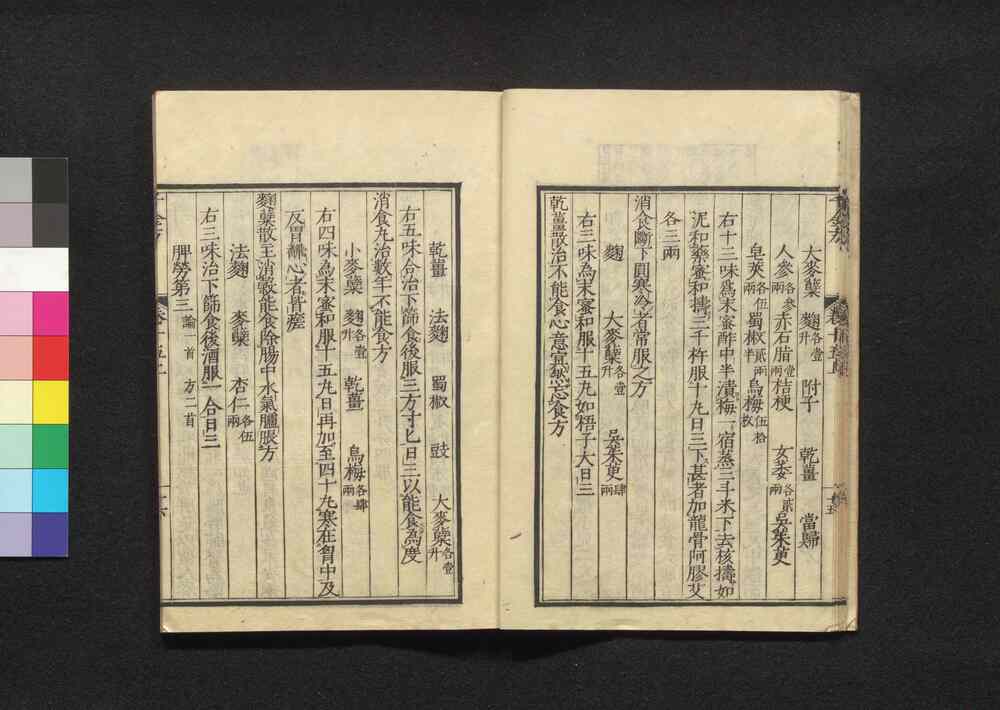 大麥糵 麴各壹升 附子 乾薑 當歸
人參各參兩 赤石脂壹兩 桔梗 女萎各貳兩 吳茱萸
皂莢各伍兩 蜀椒貳兩半 烏梅伍拾枚
右十二味為末蜜酢中半漬梅一宿蒸三斗米下去核擣如
泥和藥蜜和擣三千杵服十丸日三下甚者加龍骨阿膠艾
各三兩
消食斷下圓寒冷者常服之方
麴 大麥糵各壹升 吳茱萸肆兩
右三味為末蜜和服十五丸如梧子大日三
乾薑散治不能食心意冥然忘食方
乾薑 法麴 蜀椒 豉 大麥糵各壹升
右五味合治下篩食後服三方寸匕日三以能食為度
消食丸治數年不能食方
小麥糵 麴各壹升 乾薑 烏梅各肆兩
右四味為末蜜和服十五丸日再加至四十丸寒在胷中及
反胃翻心者皆瘥
麴糵散主消穀能食除腸中水氣臚脹方
法麴 麥糵 杏仁各伍兩
右三味治下篩食後酒服一合日三
脾勞第三 論一首 方二首